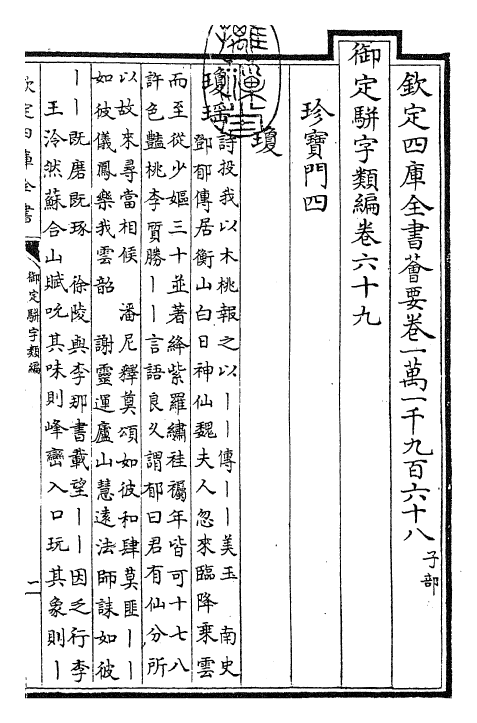 欽定四庫全書薈要卷一萬一千九百六十八 子部
御定駢字類編卷六十九
珍寶門四
瓊
瓊瑶 詩投我以木桃報之以｜｜傳｜｜美玉 南史
鄧郁傳居衡山白日神仙魏夫人忽來臨降乗雲
而至從少嫗三十並著絳紫羅繡袿𧞤年皆可十七八
許色豔桃李質勝｜｜言語良久謂郁曰君有仙分所
以故來尋當相候 潘尼釋奠頌如彼和肆莫匪｜｜
如彼儀鳳樂我雲韶 謝靈運廬山慧遠法師誄如彼
｜｜既磨既琢 徐陵與李那書載望｜｜因之行李
王泠然蘇合山賦吮其味則峰巒入口玩其象則｜
欽定四庫全書
御定駢字類編
一